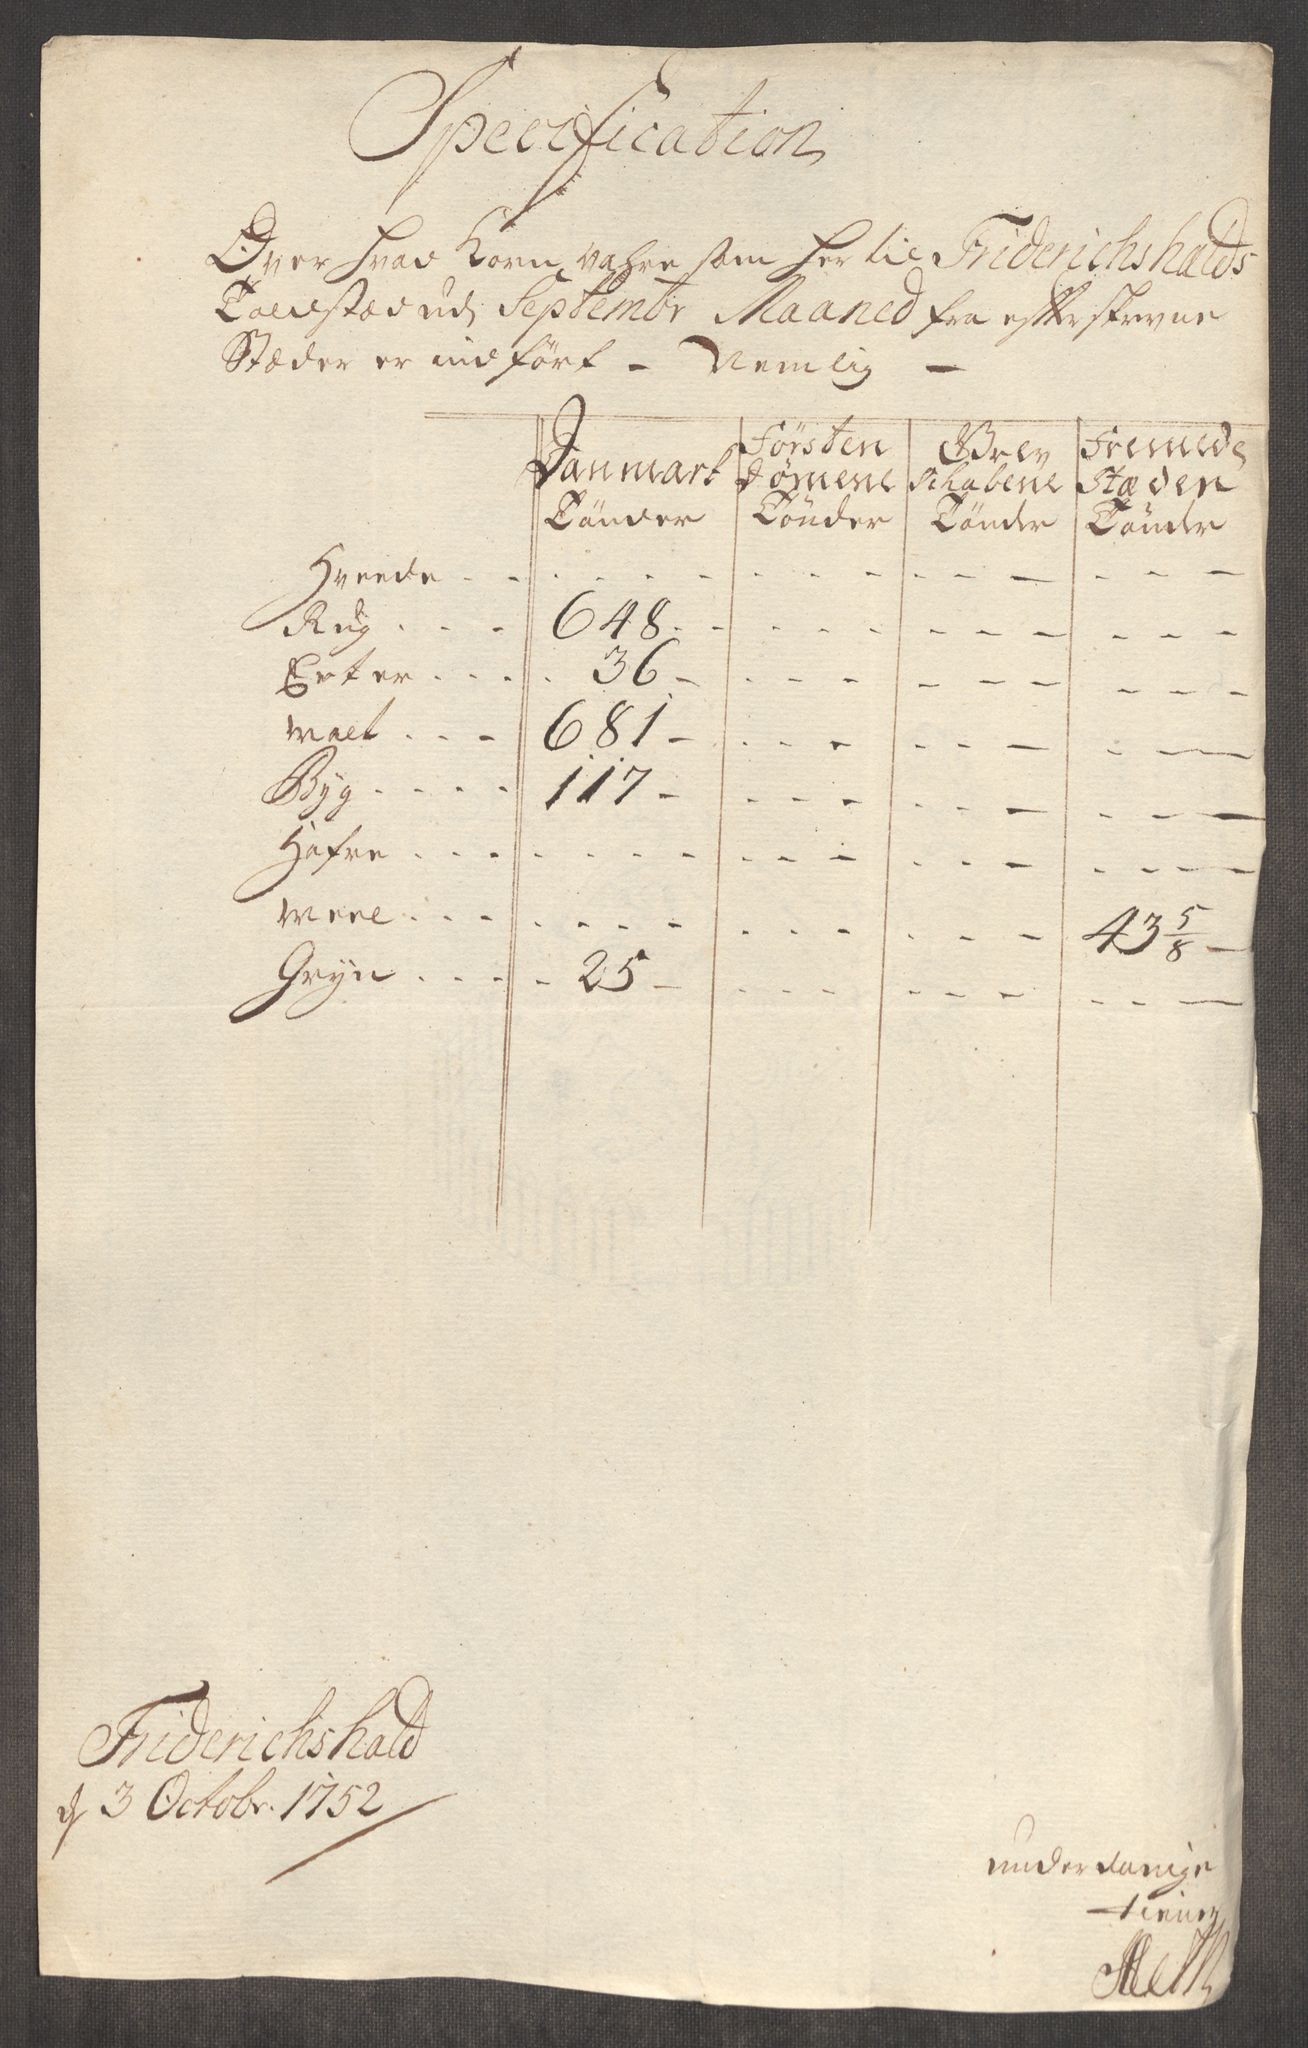 Specification
Over hvad Korn vahre som her til Friderichshalds
Toldstæd udj Septembr Maaned fra efterskrevne
Stæder er indført - Nemlig -
Danmark Försten Grev Fremede
dømene schabene Stæden
Tönder Tönder Tönder Tönder
Hveede - - - - -
Rug 648 - - -
Erter 36 - - -
Malt 681 - - -
Byg 117 - - -
Hafre - - - -
Meel - - - 43 5/8
Gryn 25 - - -
Friderichshald
d 3 Octobr. 1752
underdanige
tiener